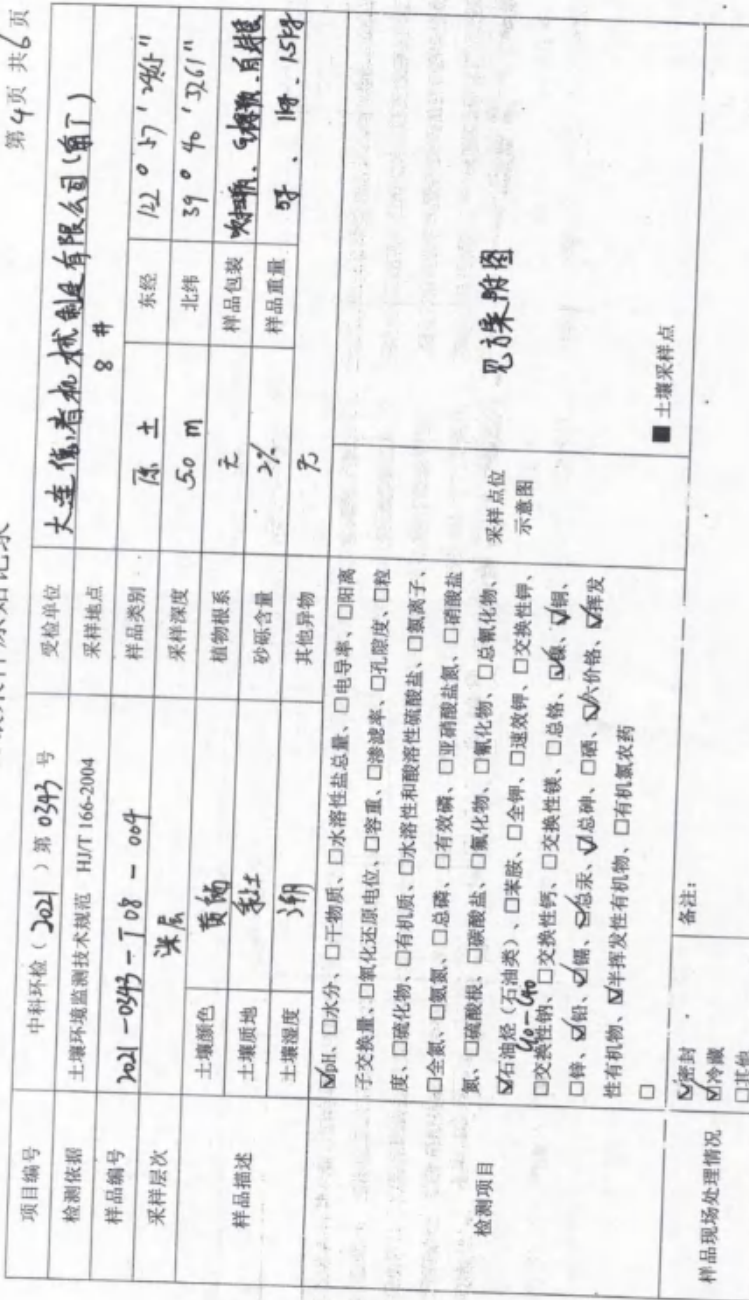 第4页 共6页
项目编号 中科环检(2021)第0343号 受检单位 大连 机械制造有限公司
检测依据 土壤环境监测技术规范 HJ/T 166-2004 采样地点 8#
样品编号 2021-0343-T08-004 样品类别 土 东经 122° 57′
采样层次 深层 采样深度 5.0 m 北纬 39° 40′ 3261″
样品描述 土壤颜色 黄 植物根系 无 样品包装
土壤质地 土 砂砾含量 2% 样品重量 1kg、1.5kg
土壤湿度 潮 其他异物 无
检测项目
☑pH、□水分、□干物质、□水溶性盐总量、□电导率、□阳离
子交换量、□氧化还原电位、□容重、□渗滤率、□孔隙度、□粒
度、□硫化物、□有机质、□水溶性和酸溶性硫酸盐、□氯离子、
□全氮、□氨氮、□总磷、□有效磷、□亚硝酸盐氮、□硝酸盐
氮、□硫酸根、□碳酸盐、□氟化物、□氰化物、□总氰化物、
☑石油烃(石油类)、□苯胺、□全钾、□速效钾、□交换性钾、
C10-C40
□交换性钠、□交换性钙、□交换性镁、□总铬、☑镍、☑铜、
□锌、☑铅、☑镉、☑总汞、☑总砷、□硒、☑六价铬、☑挥发
性有机物、☑半挥发性有机物、□有机氯农药
□
采样点位
示意图
见方案附图
■ 土壤采样点
样品现场处理情况
☑密封
☑冷藏
□其他
备注: